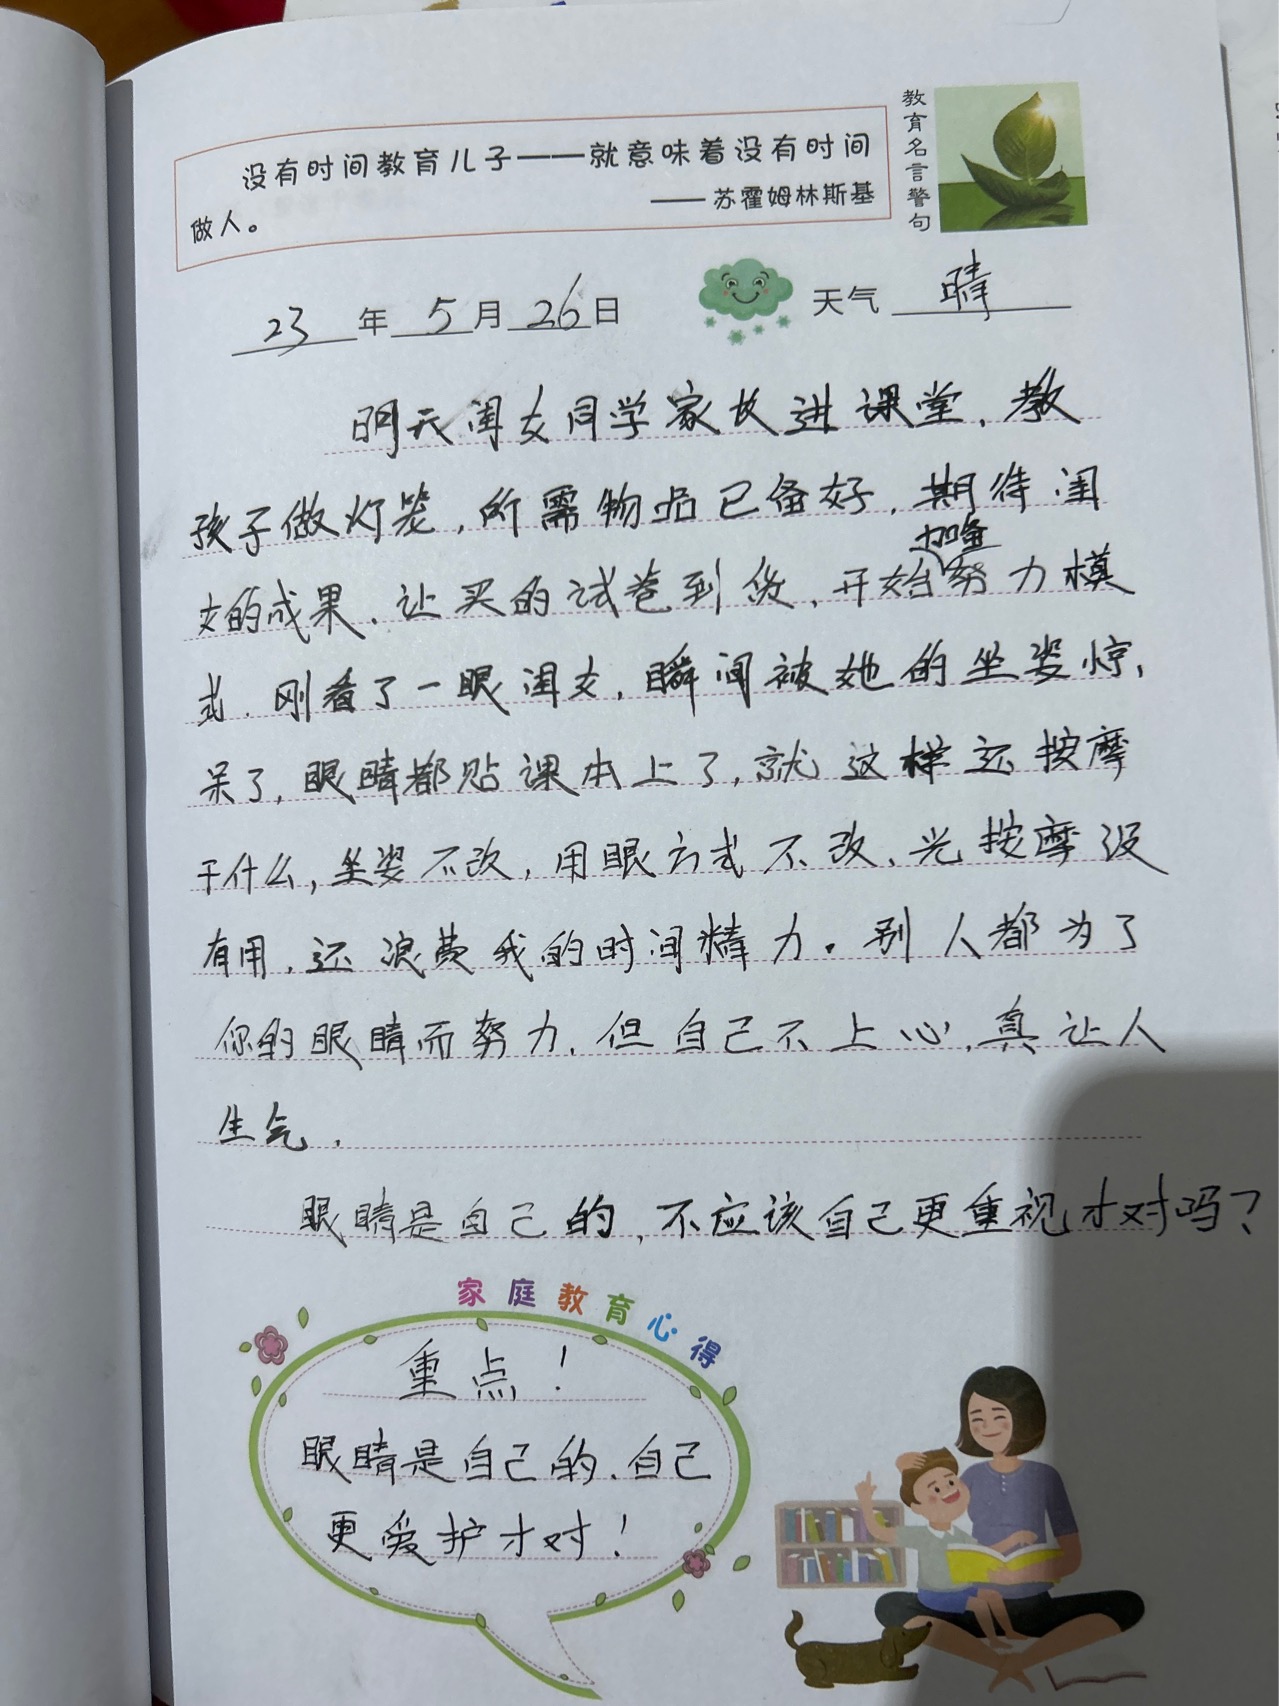 没有时间教育儿子——就意味着没有时间
做人。
——苏霍姆林斯基
教育名言警句
23年5月26日
天气 晴
明天闺女同学家长进课堂，教
孩子做灯笼，所需物品已备好，期待闺
女的成果，让买的试卷到货，开始加倍努力模
式，刚看了一眼闺女，瞬间被她的坐姿惊，
呆了，眼睛都贴课本上了，就这样还按摩
干什么，坐姿不改，用眼方式不改，光按摩没
有用，还浪费我的时间精力。别人都为了
你的眼睛而努力，但自己不上心，真让人
生气，
眼睛是自己的，不应该自己更重视才对吗？
家庭教育心得
重点！
眼睛是自己的，自己
更爱护才对！